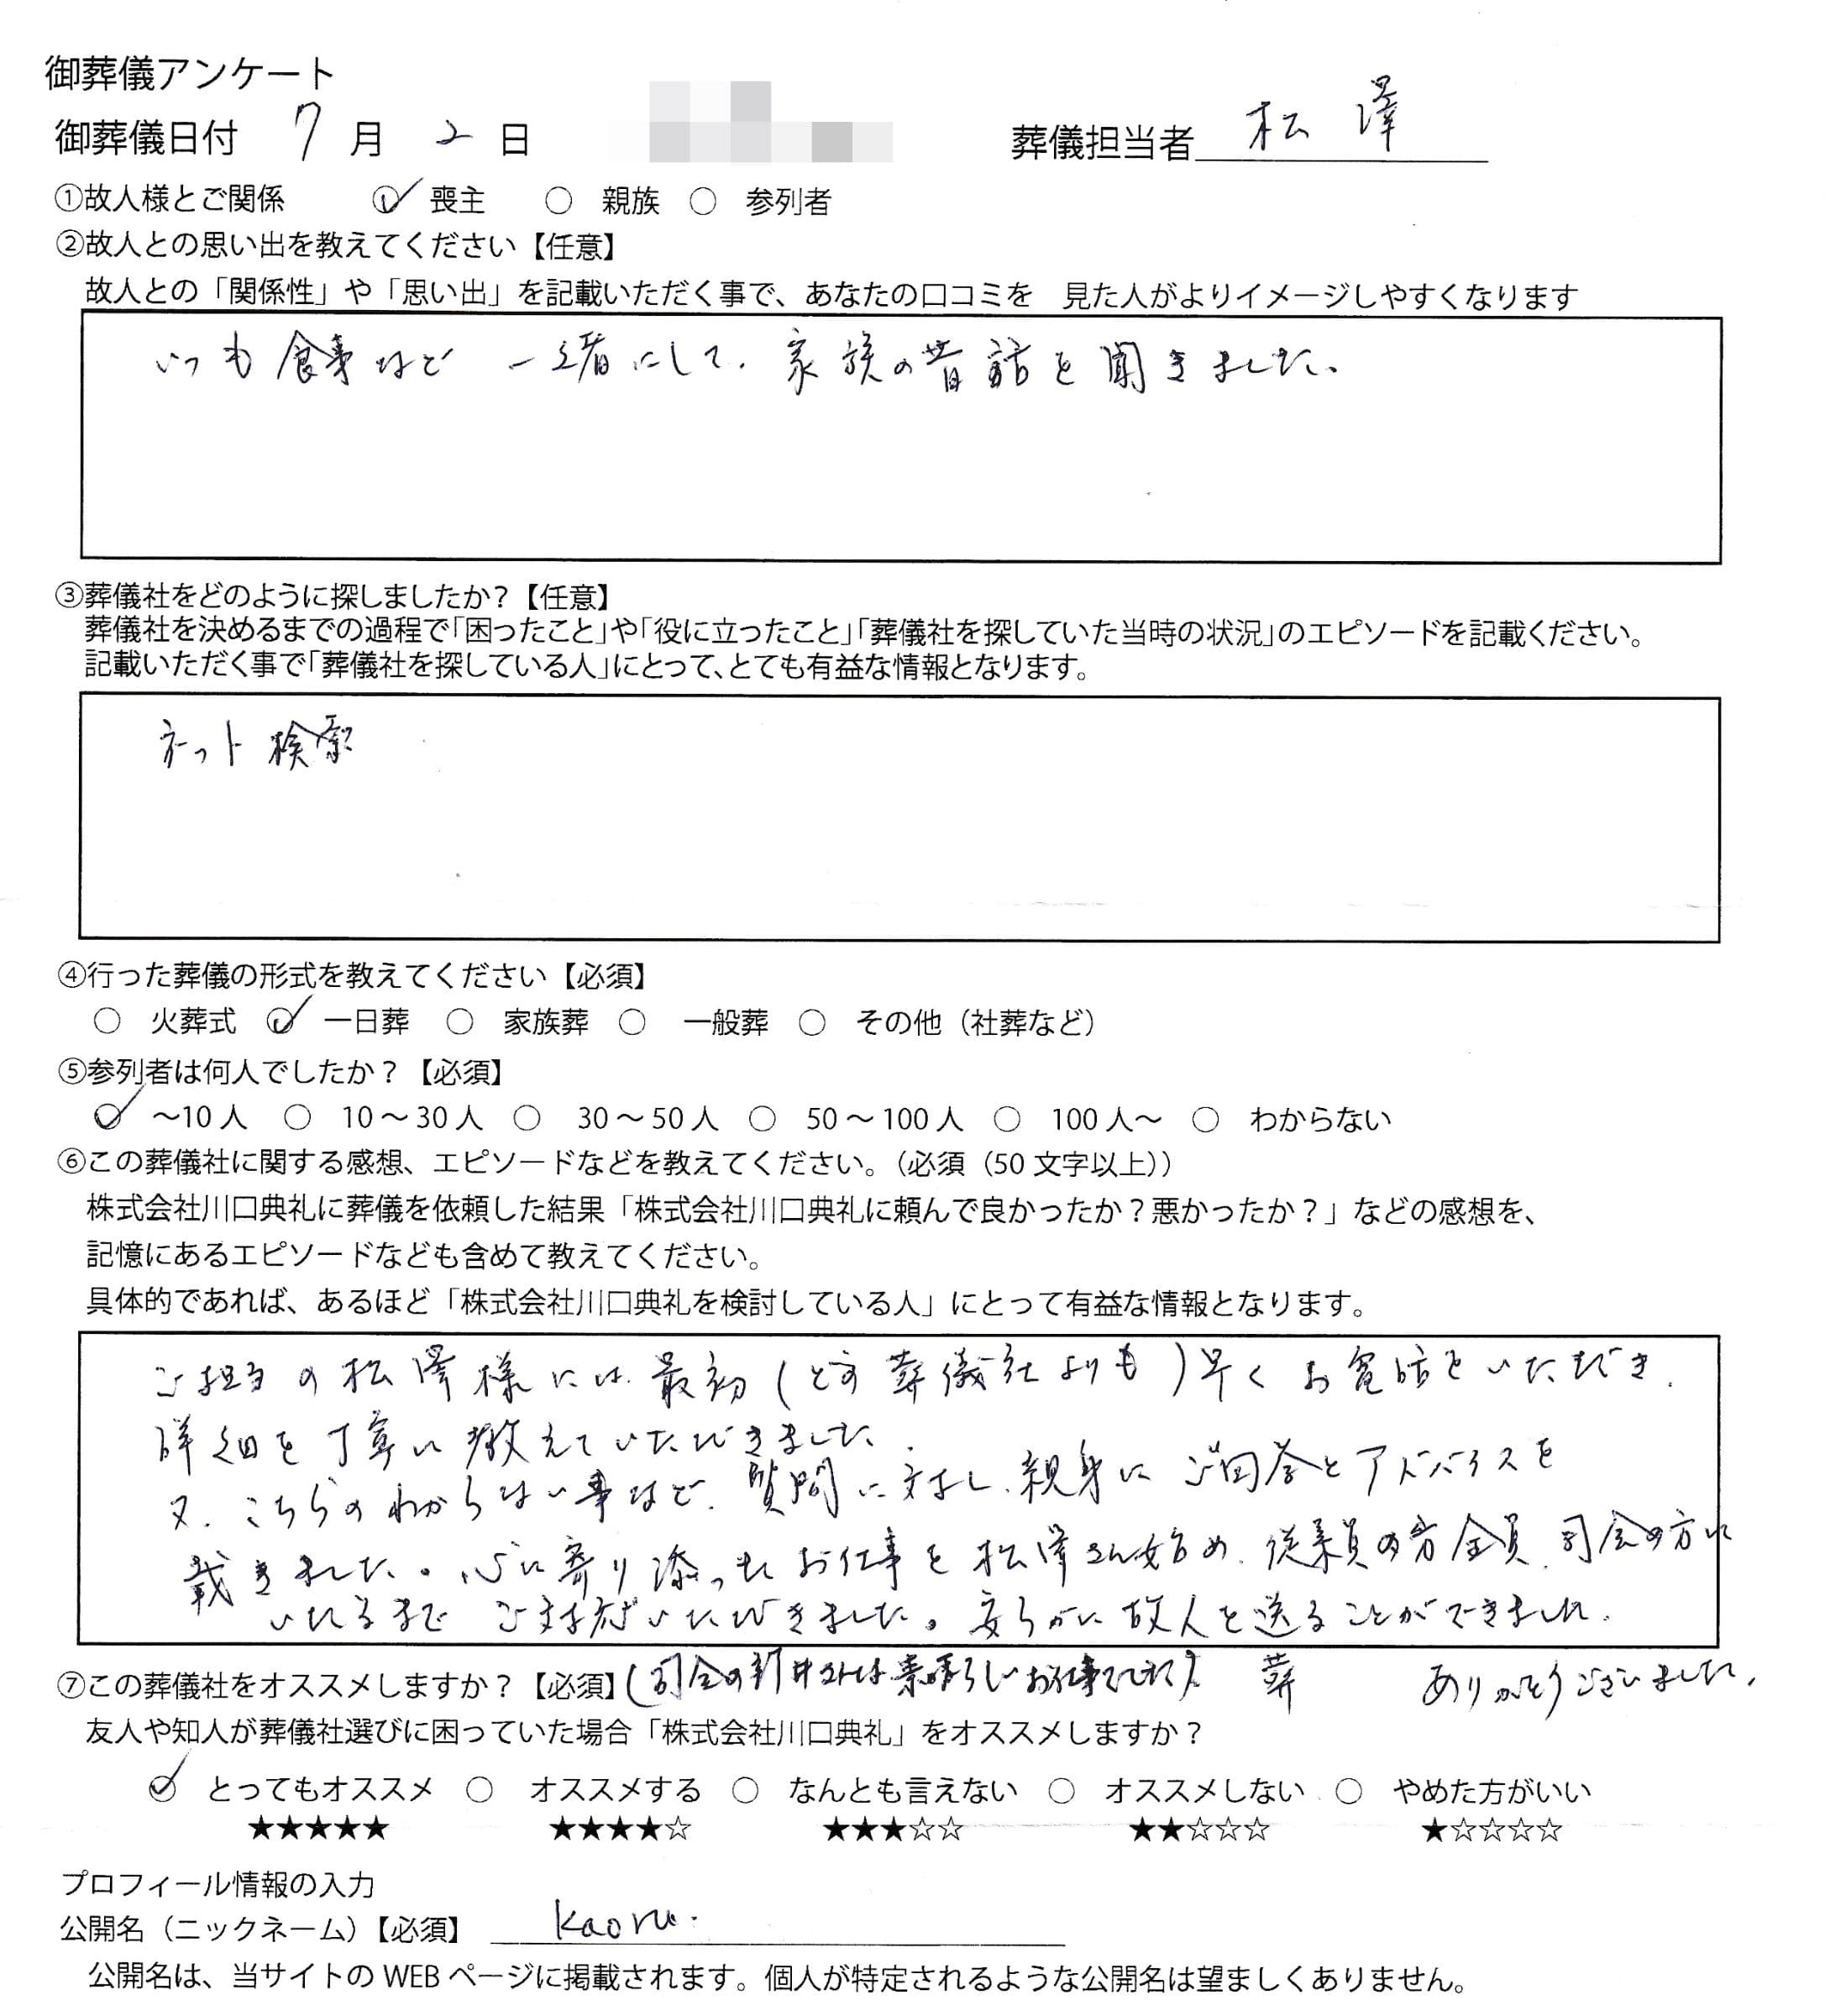 御葬儀アンケート
御葬儀日付 7月2日 葬儀担当者 松澤
①故人様とご関係 ○ 喪主 ○ 親族 ○ 参列者
②故人との思い出を教えてください【任意】
故人との「関係性」や「思い出」を記載いただく事で、あなたの口コミを 見た人がよりイメージしやすくなります
いつも食事など 一緒にして、家族の昔話を聞きました。
③葬儀社をどのように探しましたか？【任意】
葬儀社を決めるまでの過程で「困ったこと」や「役に立ったこと」「葬儀社を探していた当時の状況」のエピソードを記載ください。
記載いただく事で「葬儀社を探している人」にとって、とても有益な情報となります。
ネット検索
④行った葬儀の形式を教えてください【必須】
○ 火葬式 ○ 一日葬 ○ 家族葬 ○ 一般葬 ○ その他（社葬など）
⑤参列者は何人でしたか？【必須】
○ ～10人 ○ 10～30人 ○ 30～50人 ○ 50～100人 ○ 100人～ ○ わからない
⑥この葬儀社に関する感想、エピソードなどを教えてください。（必須（50文字以上））
株式会社川口典礼に葬儀を依頼した結果「株式会社川口典礼に頼んで良かったか？悪かったか？」などの感想を、
記憶にあるエピソードなども含めて教えてください。
具体的であれば、あるほど「株式会社川口典礼を検討している人」にとって有益な情報となります。
ご担当の松澤様には、最初（どの葬儀社よりも）早くお電話をいただき、
詳細を丁寧に教えていただきました。
又、こちらのわからない事など、質問に対し、親身にご回答とアドバイスを
戴きました。心に寄り添ったお仕事を松澤さん始め、従業員の方全員、司会の方に
いたるまで ご対応いただきました。安らかに故人を送ることができました。
⑦この葬儀社をオススメしますか？【必須】（司会の新井さんは素晴らしいお仕事でした） 葬 ありがとうございました。
友人や知人が葬儀社選びに困っていた場合「株式会社川口典礼」をオススメしますか？
○ とってもオススメ ○ オススメする ○ なんとも言えない ○ オススメしない ○ やめた方がいい
★★★★★ ★★★★☆ ★★★☆☆ ★★☆☆☆ ★☆☆☆☆
プロフィール情報の入力
公開名（ニックネーム）【必須】 Kaoru.
公開名は、当サイトのWEBページに掲載されます。個人が特定されるような公開名は望ましくありません。